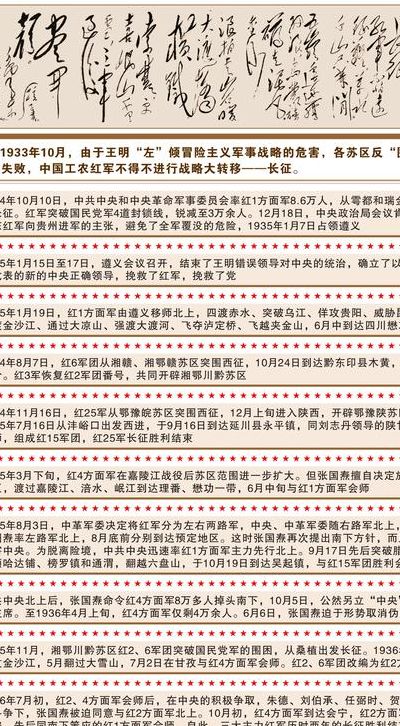 1933年10月，由于王明“左”倾冒险主义军事战略的危害，各苏区反“
失败，中国工农红军不得不进行战略大转移——长征。
4年10月10日，中共中央和中央革命军事委员会率红1方面军8.6万人，从雩都和瑞金
长征。红军突破国民党军4道封锁线，锐减至3万余人。12月18日，中央政治局会议肯
红军向贵州进军的主张，避免了全军覆没的危险，1935年1月7日占领遵义
5年1月15日至17日，遵义会议召开，结束了王明错误领导对中央的统治，确立了以
代表的新的中央正确领导，挽救了红军，挽救了党
5年1月19日，红1方面军由遵义移师北上，四渡赤水、突破乌江、佯攻贵阳、威胁昆
渡金沙江、通过大凉山、强渡大渡河、飞夺泸定桥、飞越夹金山，6月中到达四川懋
4年8月7日，红6军团从湘赣、湘鄂赣苏区突围西征，10月24日到达黔东印县木黄，
。红3军恢复红2军团番号，共同开辟湘鄂川黔苏区
4年11月16日，红25军从鄂豫皖苏区突围西征，12月上旬进入陕西，开辟鄂豫陕苏
5年7月16日从沣峪口出发西进，于9月16日到达延川县永平镇，同刘志丹领导的陕
师，组成红15军团，红25军长征胜利结束
5年3月下旬，红4方面军在嘉陵江战役后苏区范围进一步扩大。但张国焘擅自决定放
，渡过嘉陵江、涪水、岷江到达理番、懋功一带，6月中旬与红1方面军会师
5年8月3日，中革军委决定将红军分为左右两路军，中央、中革军委随右路军北上，
国焘率左路军北上，8月底前分别到达预定地区。这时张国焘再次提出南下方针，而
中央。为脱离险境，中共中央迅速率红1方面军主力先行北上。9月17日先后突破腊
哈达铺、榜罗镇和通渭，翻越六盘山，于10月19日到达吴起镇，与红15军团胜利会
中央北上后，张国焘命令红4方面军8万多人掉头南下，10月5日，公然另立“中央
主席。至1936年4月上旬，红4方面军仅剩4万余人。6月6日，张国焘迫于形势取消伪
5年11月，湘鄂川黔苏区红2、6军团突破国民党军的围困，从桑植出发长征。1936
金沙江，5月翻过大雪山，7月2日在甘孜与红4方面军会师。红2、6军团改编为红2方
6年7月初，红2、4方面军会师后，在中央的积极争取，朱德、刘伯承、任弼时、贺
争下，张国焘被迫同意与红2方面军北上。10月初，红4方面军到达会宁，红2方面